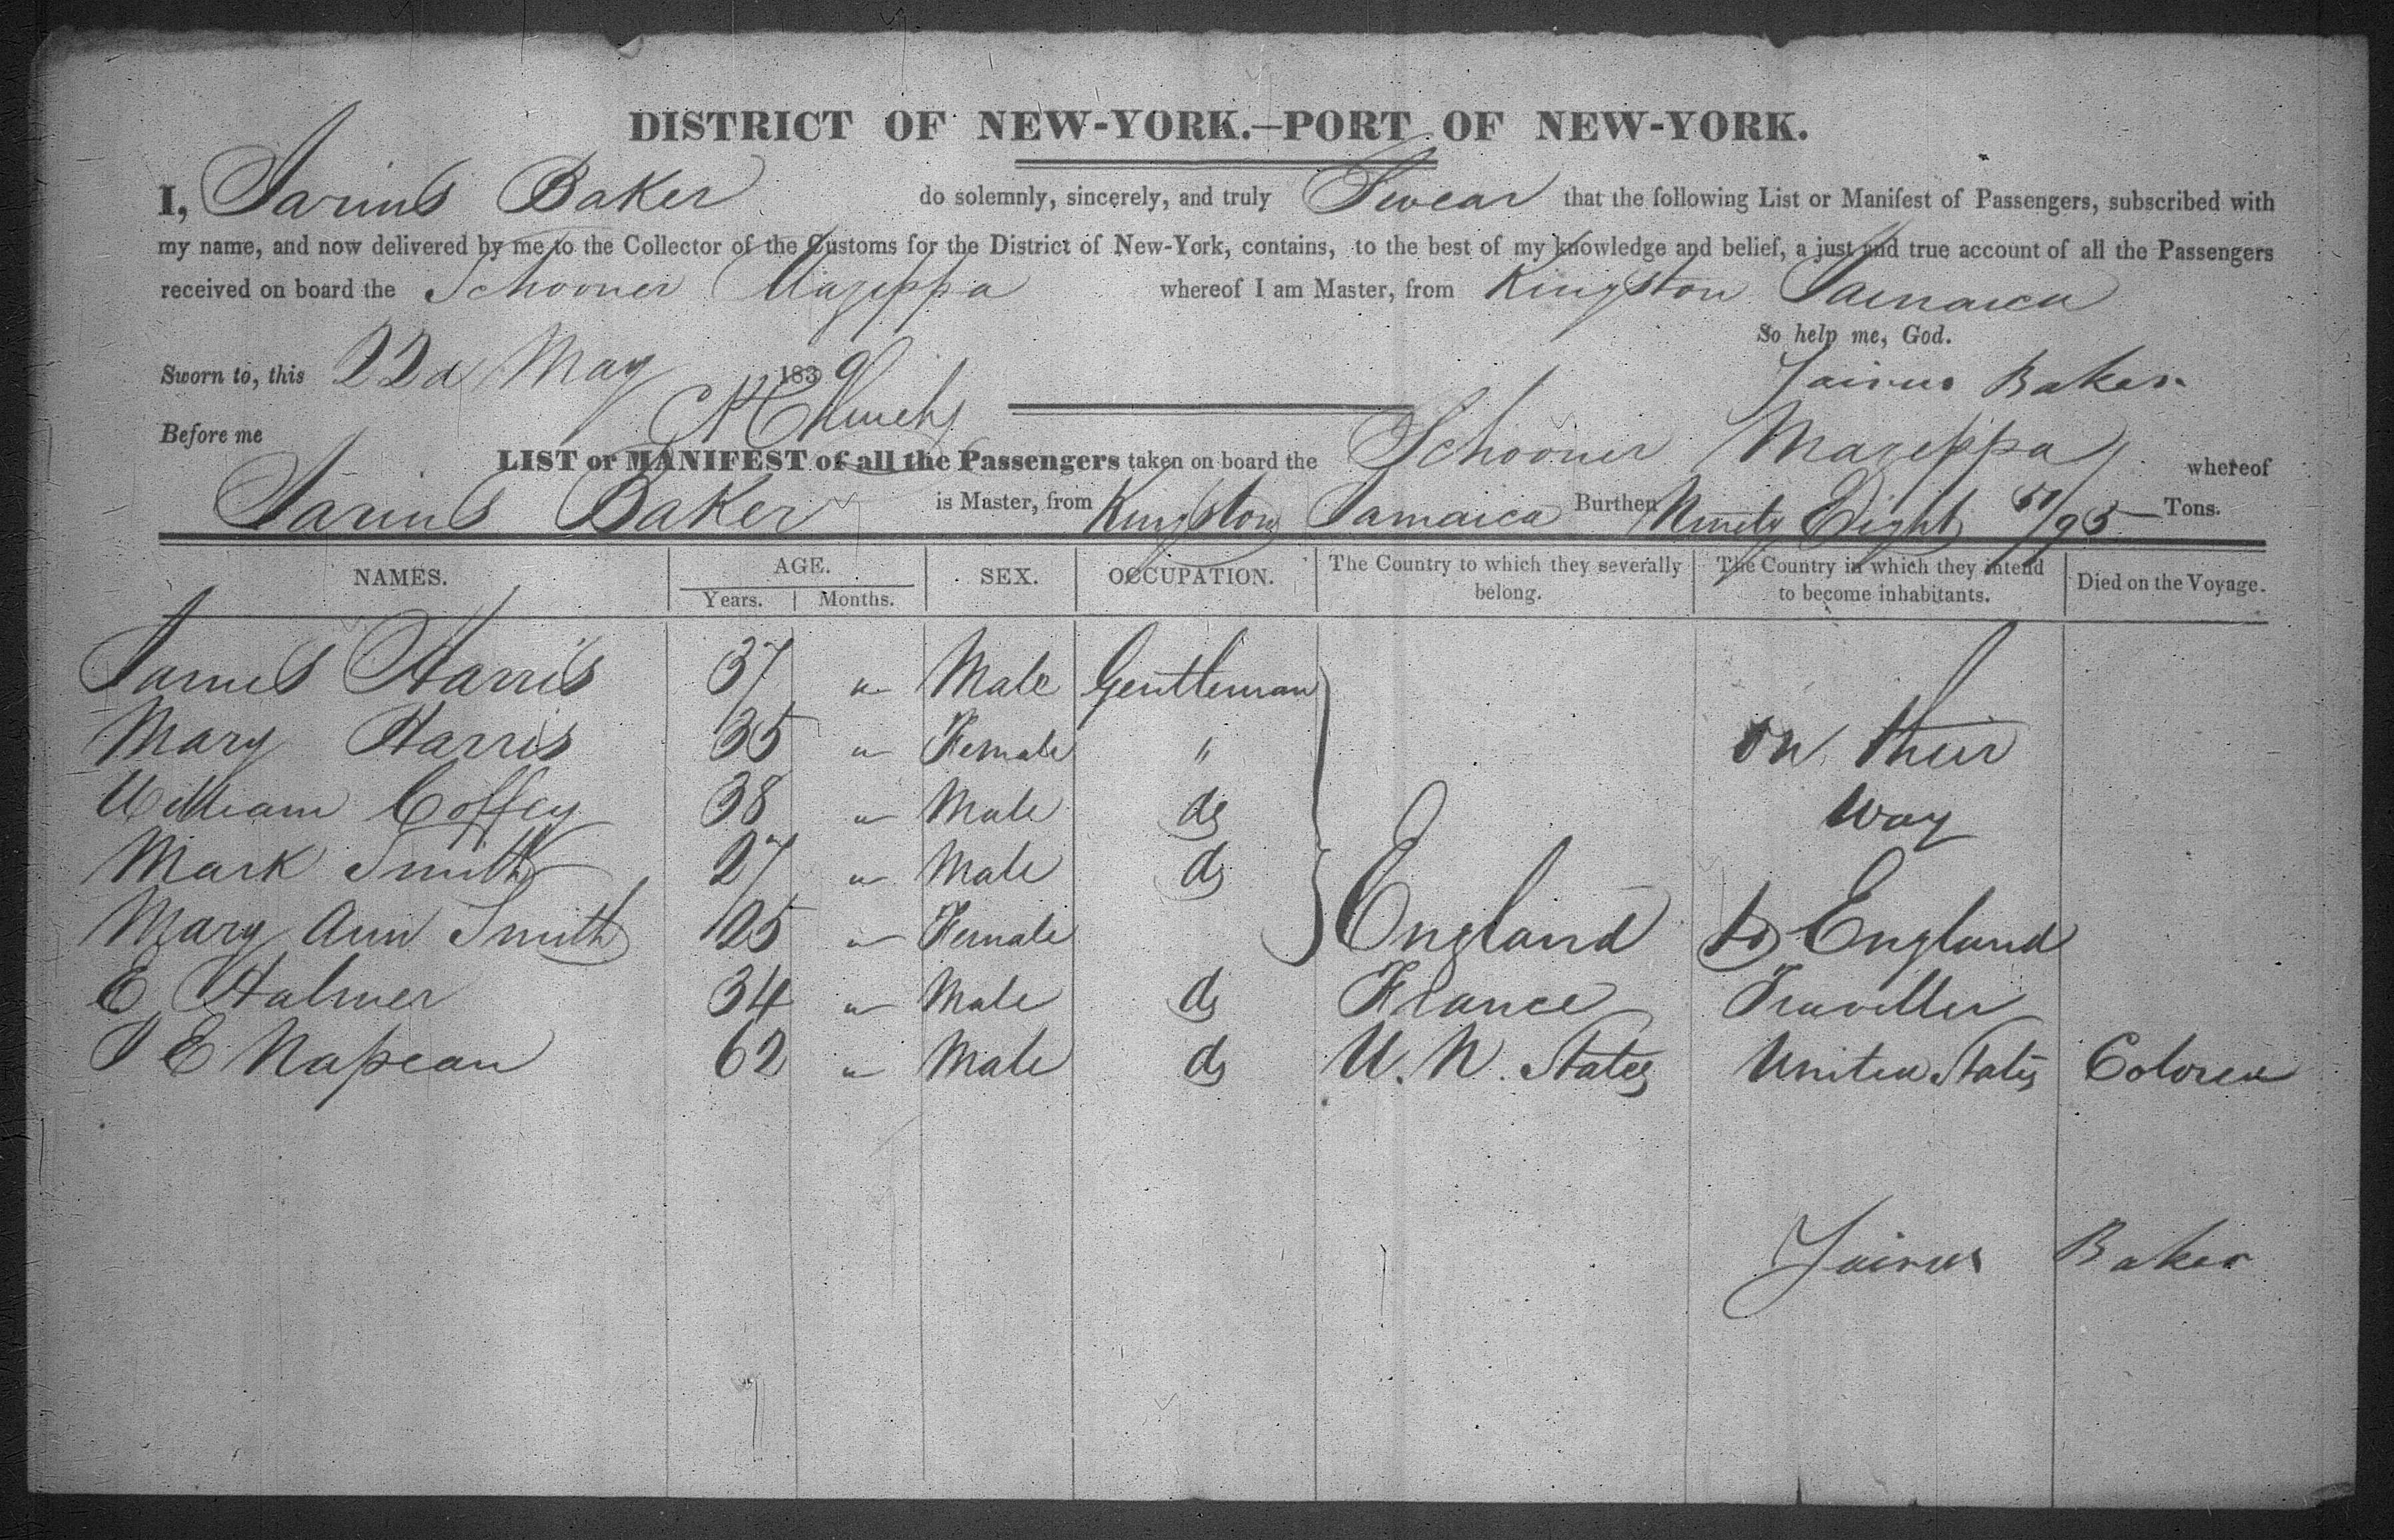 DISTRICT OF NEW-YORK.—PORT OF NEW-YORK.
I, Jarius Baker do solemnly, sincerely, and truly Swear that the following List or Manifest of Passengers, subscribed with
my name, and now delivered by me to the Collector of the Customs for the District of New-York, contains, to the best of my knowledge and belief, a just and true account of all the Passengers
received on board the Schooner Mazeppa whereof I am Master, from Kingston Jamaica
So help me, God.
Sworn to, this 22d May 1839 Jairus Baker
Before me
LIST or MANIFEST of all the Passengers taken on board the Schooner Mazeppa whereof
Jarius Baker is Master, from Kingston Jamaica Burthen Ninety Eight 51/95 Tons.
NAMES. AGE. SEX. OCCUPATION. The Country to which they severally belong. The Country in which they intend to become inhabitants. Died on the Voyage.
Years. Months.
James Harris 37 " Male Gentleman
Mary Harris 35 " Female " on their
William Coffey 38 " Male do way
Mark Smith 27 " Male do
Mary Ann Smith 25 " Female England to England
E Halmer 34 " Male do France Traveller
E Napean 62 " Male do U. N. States United States Colored
Jairus Baker